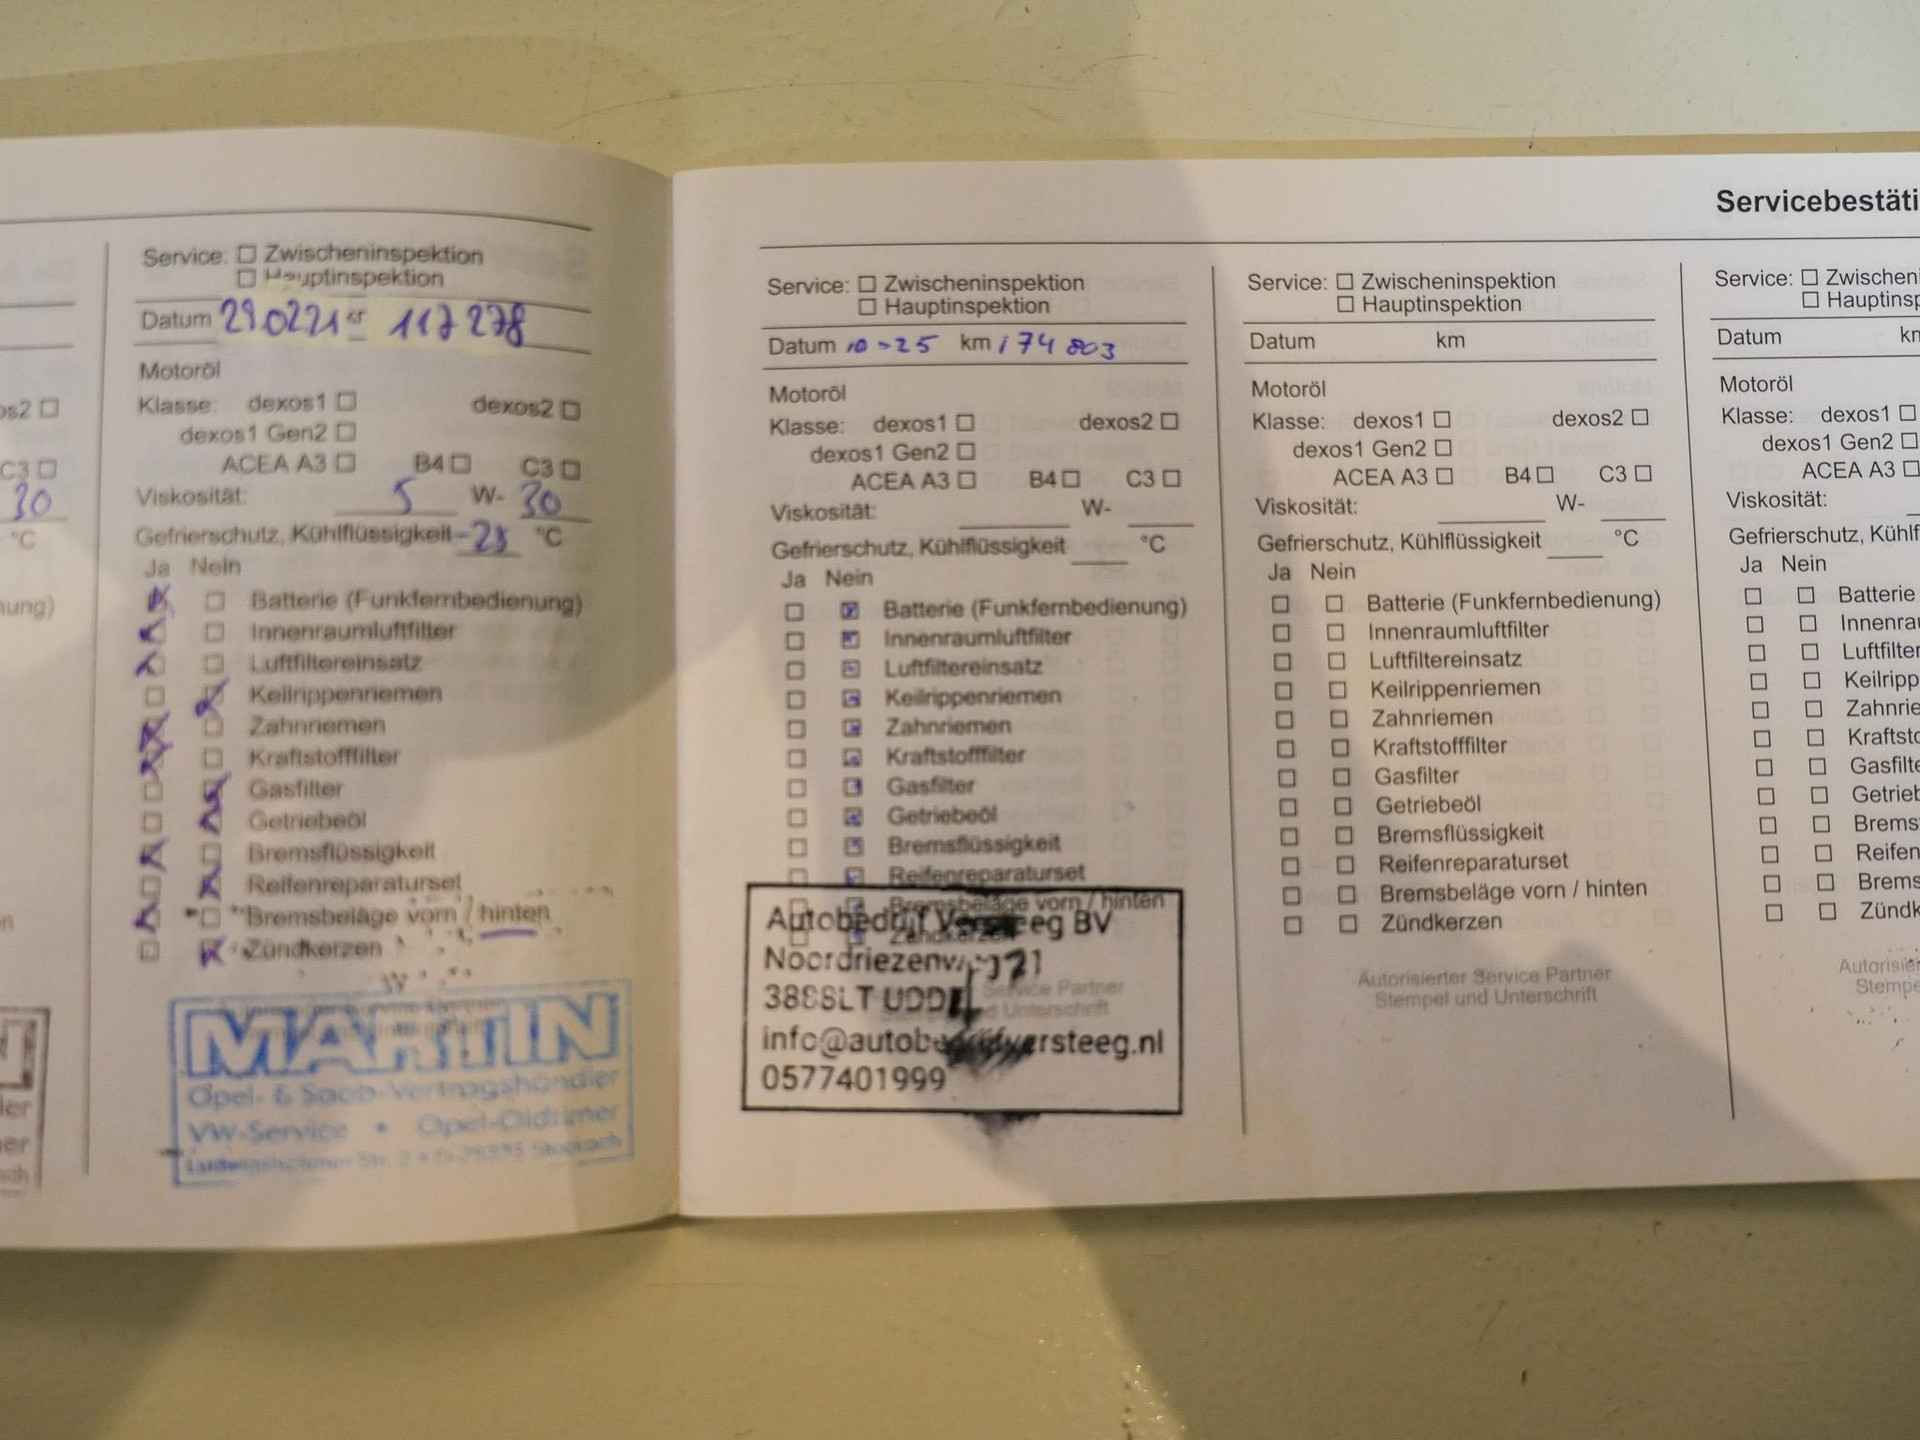 os2 ☐
C3 ☐
30
°C
nung)
en
N
ler
ner
Service: ☐ Zwischeninspektion
☐ Hauptinspektion
Datum 290221 117278
Motoröl
Klasse: dexos1 ☐ dexos2 ☐
dexos1 Gen2 ☐
ACEA A3 ☐ B4 ☐ C3 ☐
Viskosität: 5 W- 30
Gefrierschutz, Kühlflüssigkeit °C
Ja Nein
Batterie (Funkfernbedienung)
Innenraumluftfilter
Luftfiltereinsatz
Keilrippenriemen
Zahnriemen
Kraftstofffilter
Gasfilter
Getriebeöl
Bremsflüssigkeit
Reifenreparaturset
Bremsbeläge vorn / hinten
Zündkerzen
MARTIN
Opel- & Saab-Vertragshändler
VW-Service • Opel-Oldtimer
Servicebestäti
Service: ☐ Zwischeninspektion
☐ Hauptinspektion
Datum 10-25 km 174803
Motoröl
Klasse: dexos1 ☐ dexos2 ☐
dexos1 Gen2 ☐
ACEA A3 ☐ B4 ☐ C3 ☐
Viskosität: W-
Gefrierschutz, Kühlflüssigkeit °C
Ja Nein
Batterie (Funkfernbedienung)
Innenraumluftfilter
Luftfiltereinsatz
Keilrippenriemen
Zahnriemen
Kraftstofffilter
Gasfilter
Getriebeöl
Bremsflüssigkeit
Reifenreparaturset
Bremsbeläge vorn / hinten
Zündkerzen
Service Partner
Unterschrift
Autobedrijf Versteeg BV
Noordriezenweg 21
3888LT UDDEL
info@autobedrijfversteeg.nl
0577401999
Service: ☐ Zwischeninspektion
☐ Hauptinspektion
Datum km
Motoröl
Klasse: dexos1 ☐ dexos2 ☐
dexos1 Gen2 ☐
ACEA A3 ☐ B4 ☐ C3 ☐
Viskosität: W-
Gefrierschutz, Kühlflüssigkeit °C
Ja Nein
☐ ☐ Batterie (Funkfernbedienung)
☐ ☐ Innenraumluftfilter
☐ ☐ Luftfiltereinsatz
☐ ☐ Keilrippenriemen
☐ ☐ Zahnriemen
☐ ☐ Kraftstofffilter
☐ ☐ Gasfilter
☐ ☐ Getriebeöl
☐ ☐ Bremsflüssigkeit
☐ ☐ Reifenreparaturset
☐ ☐ Bremsbeläge vorn / hinten
☐ ☐ Zündkerzen
Autorisierter Service Partner
Stempel und Unterschrift
Service: ☐ Zwischeni
☐ Hauptinsp
Datum kn
Motoröl
Klasse: dexos1 ☐
dexos1 Gen2 ☐
ACEA A3 ☐
Viskosität:
Gefrierschutz, Kühlf
Ja Nein
☐ ☐ Batterie
☐ ☐ Innenrau
☐ ☐ Luftfilter
☐ ☐ Keilripp
☐ ☐ Zahnrie
☐ ☐ Kraftsto
☐ ☐ Gasfilte
☐ ☐ Getrieb
☐ ☐ Brems
☐ ☐ Reifen
☐ ☐ Brems
☐ ☐ Zündk
Autorisier
Stempe